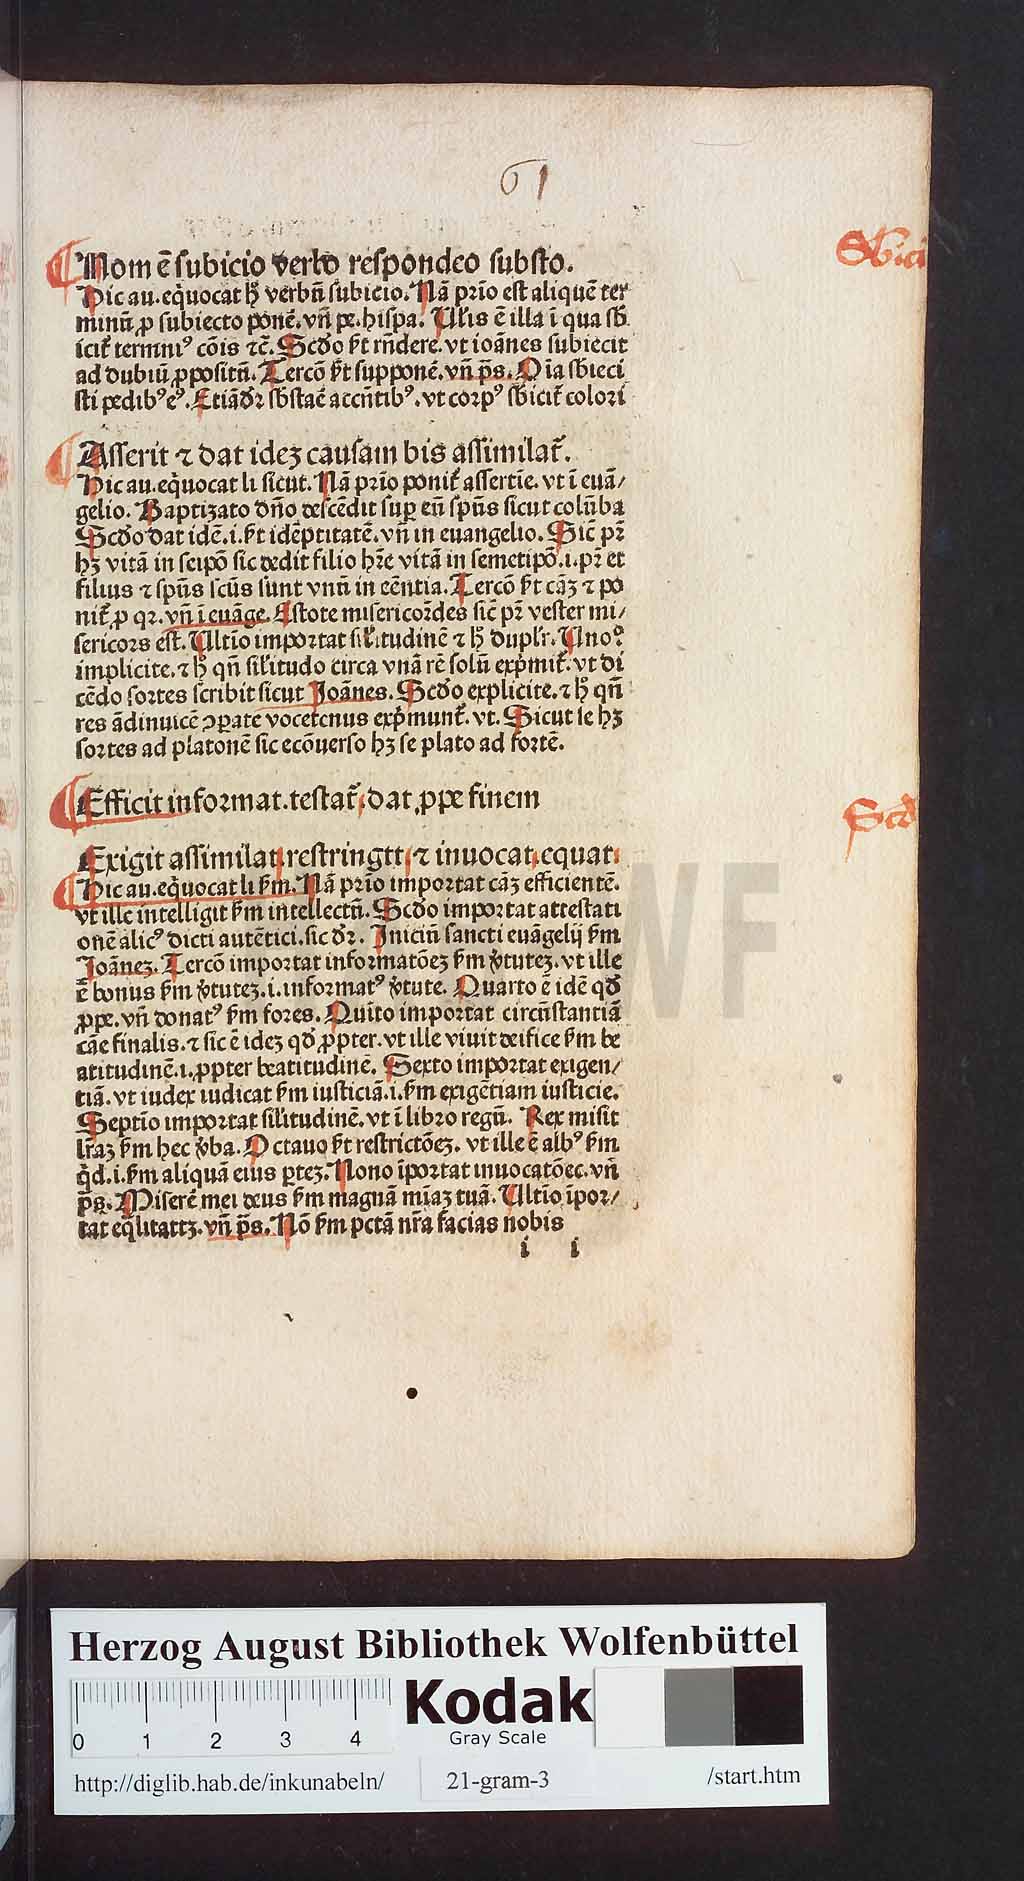 61
Sbici
Nom ē subicio verbo respondeo substo.
Hic au. eq̇uocat h̉ verbū subicio. Nā prīo est aliquē ter
minū ꝓ subiecto ponē. vñ pe. hispa. Vl̓is ē illa ī qua sb̄
icit̉ terminꝰ cōis ⁊c̄. Scd̓o ħt rn̄dere. vt ioānes subiecit
ad dubiū ꝓpositū. Tercō ħt supponē. vñ p̄s. Oīa sb̄ieci
sti pedibꝰ eꝰ. Etiā dr̄ sb̄stāē accn̄tibꝰ. vt corpꝰ sb̄icit̉ colori
Asserit ⁊ dat idez causam bis assimilat̉.
Hic au. eq̇uocat li sicut. Nā prīo ponit̉ assertīe. vt ī euā/
gelio. Baptizato dn̄o descēdit suꝑ eū spūs sicut colūba
Scd̓o dat idē. i. ħt idēptitatē. vñ in euangelio. Sic̄ pr̄
hꝫ vitā in seipō sic dedit filio hr̄e vitā in semetipō. i. pr̄ et
filius ⁊ spūs scūs sunt vnū in eēntia. Tercō ħt cāꝫ ⁊ po
nit̉ ꝓ qꝛ. vñ ī euāge. Estote misericordes sic̄ pr̄ vester mi/
sericors est. Vltīo importat sil̓itudinē ⁊ h̉ dupl̓r. Vnoº
implicite. ⁊ h̉ qn̄ sil̓itudo circa vnā rē solū exp̓mit̉. vt di
cēdo sortes scribit sicut Joānes. Scd̓o explicite. ⁊ h̉ qn̄
res ādinuicē ꝯꝑate vocetenus exp̓munt̉. vt. Sicut se hꝫ
sortes ad platonē sic ecōuerso hꝫ se plato ad sortē.
Efficit informat. testat̉, dat ꝓpe finem
Scd̓
Exigit assimilat restringtt, ⁊ inuocat, equat,
Hic au. eq̇uocat li ẜm. Nā prīo importat cāꝫ efficientē.
vt ille intelligit ẜm intellectū. Scd̓o importat attestati
onē alicꝰ dicti autētici. sic dr̄. Iniciū sancti euāgelij ẜm
Joāneꝫ. Tercō importat informatōeꝫ ẜm v̓tuteꝫ. vt ille
ē bonus ẜm v̓tuteꝫ. i. informatꝰ v̓tute. Quarto ē idē qd̓
ꝓpe. vñ donatꝰ ẜm fores. Quīto importat circūstantiā
cāe finalis. ⁊ sic ē ideꝫ qd̓ ꝓpter. vt ille viuit deifice ẜm be
atitudinē. i. ꝓpter beatitudinē. Sexto importat exigen/
tiā. vt iudex iudicat ẜm iusticiā. i. ẜm exigētiam iusticie.
Septīo importat sil̓itudinē. vt ī libro regū. Rex misit
lr̄aꝫ ẜm hec v̓ba. Octauo ħt restrictōeꝫ. vt ille ē albꝰ ẜm
qd̓. i. ẜm aliquā eius ꝑteꝫ. Nono īportat inuocatōeē. vñ
p̄s. Miserē mei deus ẜm magnā mīaꝫ tuā. Vltīo īpor/
tat eq̓litateꝫ. vñ p̄s. Nō ẜm pctā nr̄a facias nobis
i i
Herzog August Bibliothek Wolfenbüttel
0 1 2 3 4
Kodak
Gray Scale
http://diglib.hab.de/inkunabeln/ 21-gram-3 /start.htm